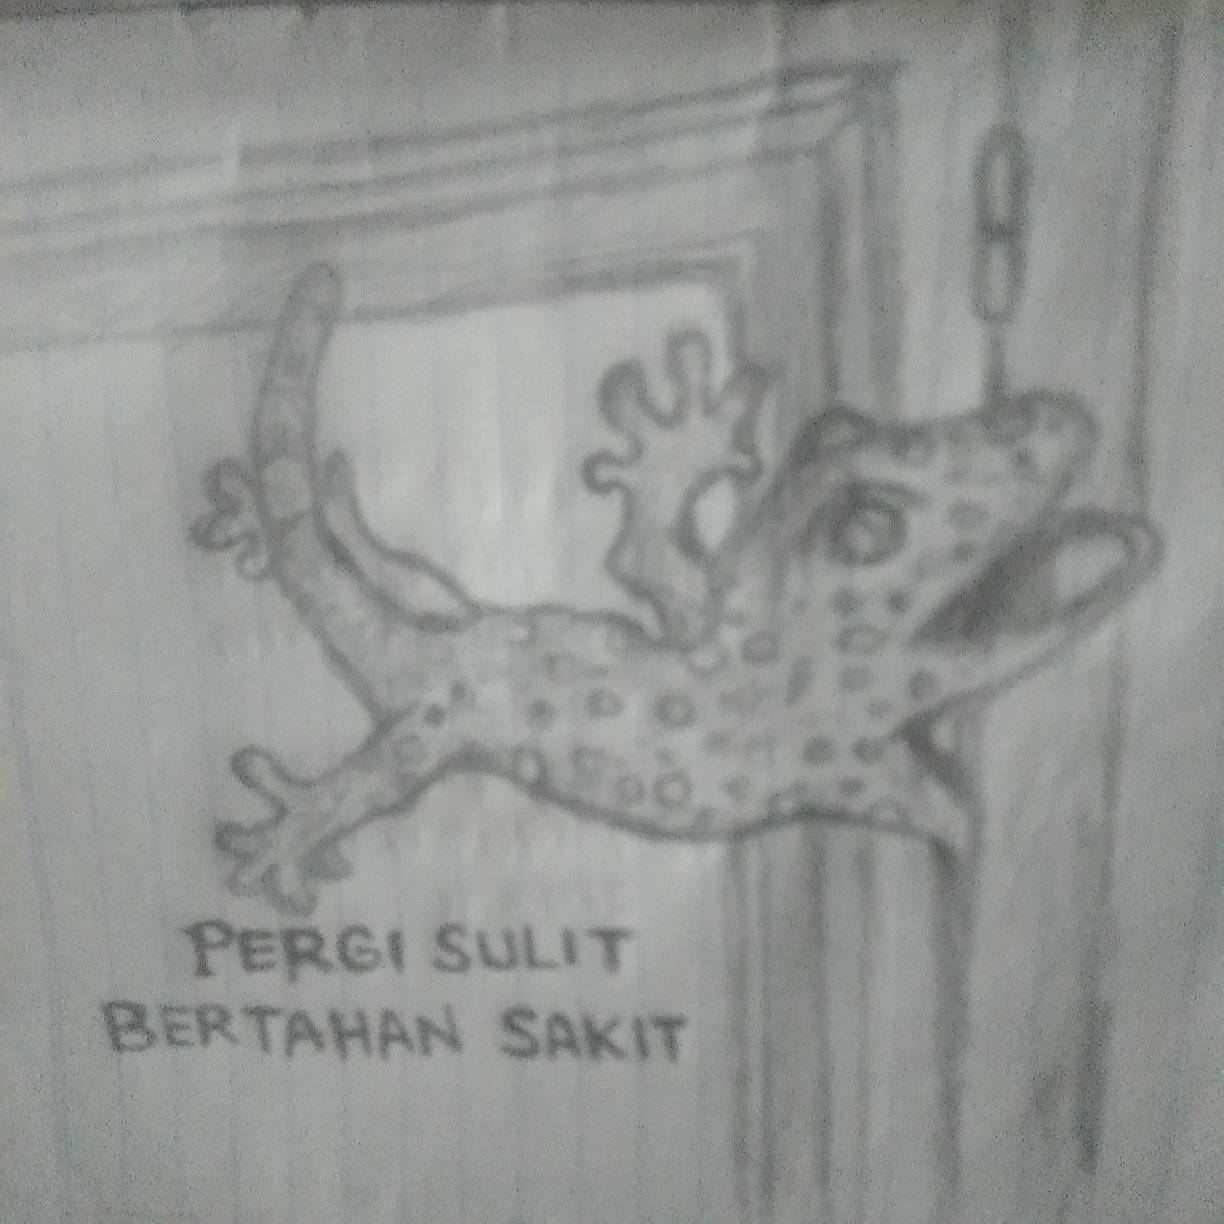 PERGI SULIT
BERTAHAN SAKIT